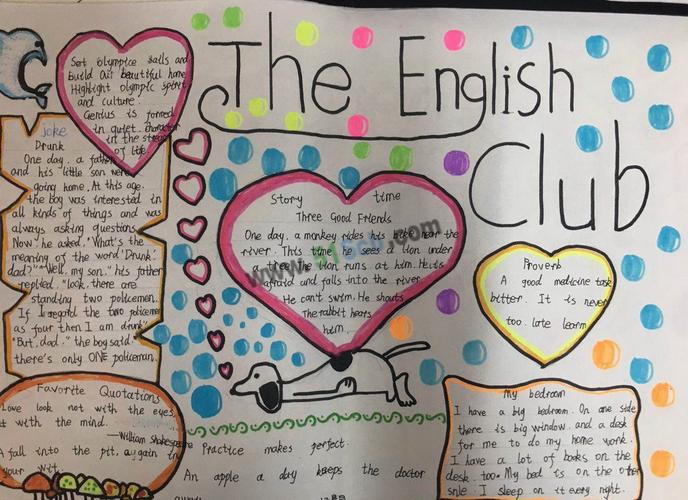 The English
Club
Set Olympics sails and
build Our beautiful home
Highlight olympic spirit
and culture
Genius is formed
in quiet, character
in the stream
of life
joke
Drunk
One day, a father
and his little son were
going home. At this age,
the boy was interested in
all kinds of things and was
always asking questions.
Now he asked, "What's the
meaning of the word "Drunk",
dad?" "Well, my son," his father
replied, "look, there are
standing two policemen.
If I regard the two policemen
as four then I am drunk"
"But, dad," the boy said
"there's only ONE policeman.
Story time
Three Good Friends
One day, a monkey rides his bike near the
river. This time he sees a lion under
a tree. The lion runs at him. He is
afraid and falls into the river.
He can't swim. He shouts
The rabbit hears
him.
Proverb
A good medicine task
bitter. It is never
too late learn
Favorite Quotations
Love look not with the eyes,
with the mind.
—William Shakespeare
A fall into the pit, a gain in
your wit.
Practice makes perfect.
An apple a day keeps the doctor
My bedroom
I have a big bedroom. On one side
there is big window. and a desk
for me to do my home work.
I have a lot of books on the
desk, too. My bed is on the other
side. I sleep on it every night.